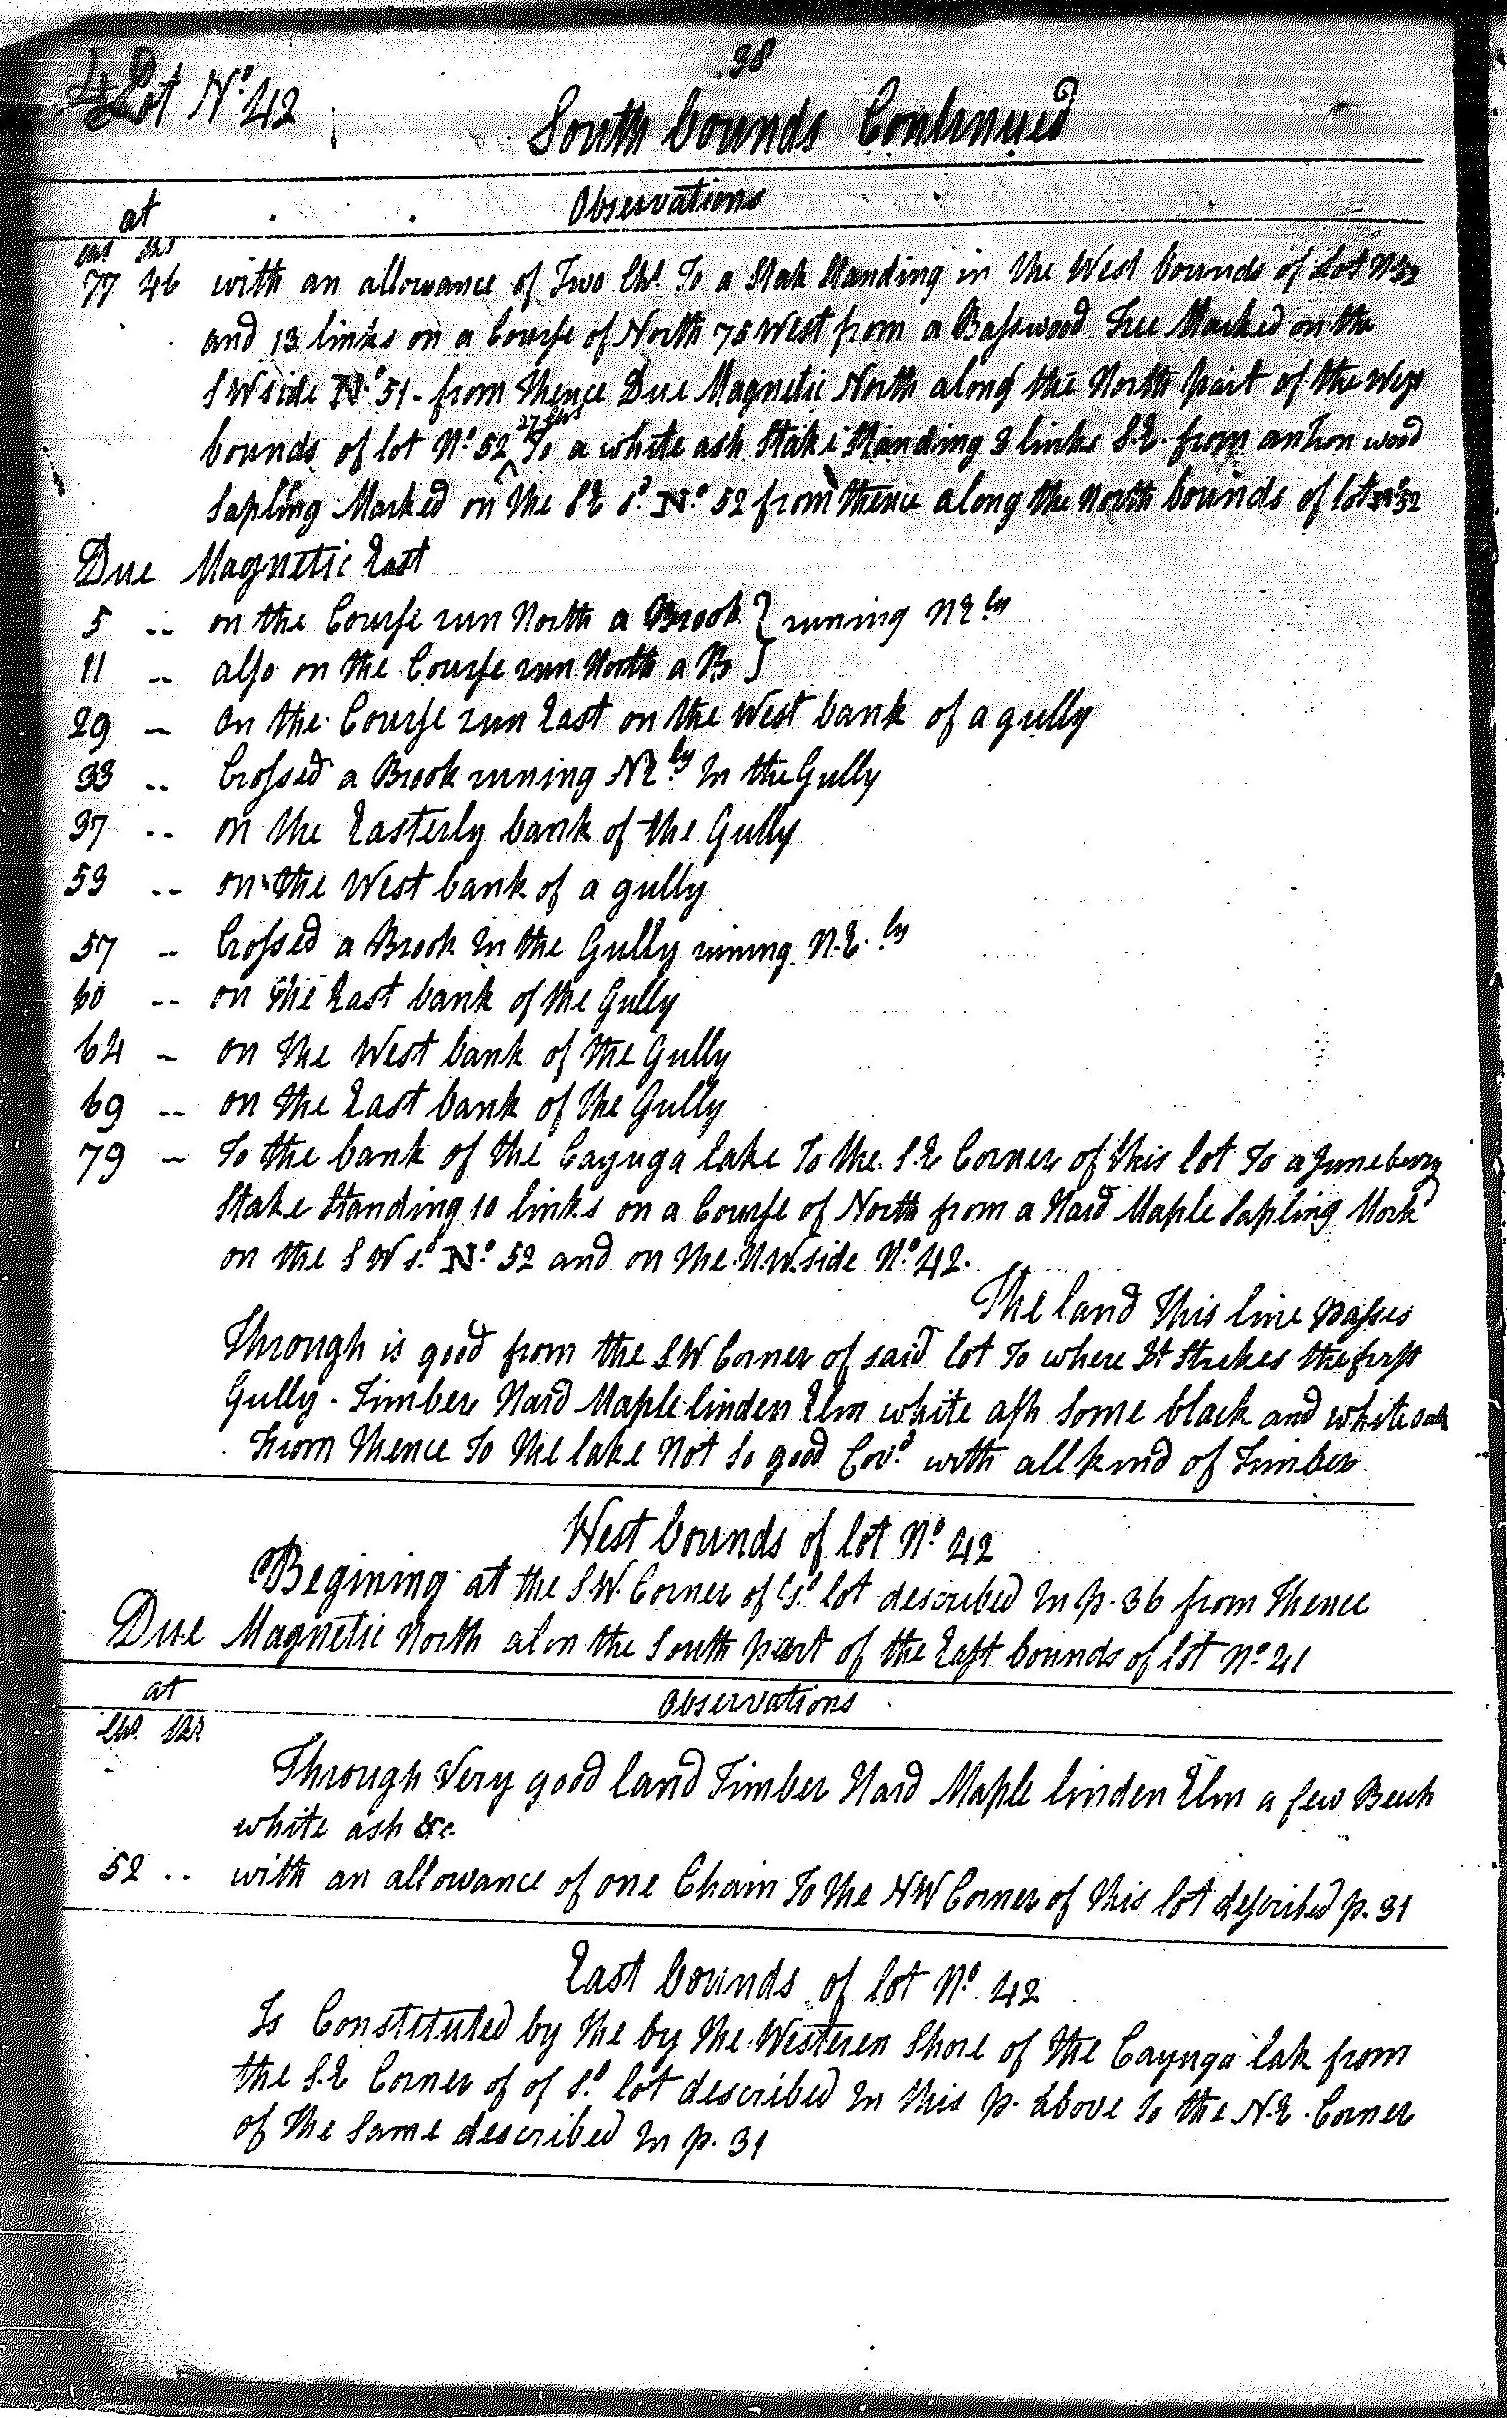 38
Lot No. 42
South bounds Continued
at Observations
Chs Lks
77 46 with an allowance of Two Chs. To a Stak Standing in the West bounds of Lot No 52
and 13 links on a Course of North 78 West from a Basswood Tree Marked on the
SW side No. 51 - from Thence Due Magnetic North along the North part of the West
bounds of lot No. 52 To a white ash Stake Standing 3 links S.E. from an Iron wood
Sapling Marked on the SE sd. No. 52 from thence along the North bounds of lot No 52
Due Magnetic East
5 .. on the Course run North a Brook } runing NE ly
11 .. also on the Course run North a B }
29 - on the Course run East on the West bank of a gully
33 .. Crossed a Brook runing NE ly In the Gully
37 .. on the Easterly bank of the Gully
53 .. on the West bank of a gully
57 .. Crossed a Brook In the Gully runing N.E. ly
60 .. on the East bank of the Gully
64 - on the West bank of the Gully
69 .. on the East bank of the Gully
79 - To the bank of the Cayuga lake To the S.E Corner of this lot To a Juneberry
Stake Standing 10 links on a Course of North from a Hard Maple Sapling Markd
on the SW sd. No. 52 and on the N.W. side No. 42.
The land this line passes
Through is good from the SW Corner of said lot To where It Strekes the first
Gully - Timber Hard Maple linden Elm white ash Some black and white oak
From Thence To the lake Not So good Covd. with all kind of Timber
West bounds of lot No. 42
Begining at the S.W. Corner of sd. lot described In p. 36 from Thence
Due Magnetic North alon the South part of the East bounds of lot No. 41
at Observations
Chs. Lks
Through Very good land Timber Hard Maple linden Elm a few Beech
white ash &c
52 .. with an allowance of one Chain To the NW Corner of this lot described p. 31
East bounds of lot No. 42
Is Constituted by the by the Westeren Shore of the Cayuga lak from
the S.E Corner of of sd. lot described In this p. above To the N.E. Corner
of the Same described In p. 31